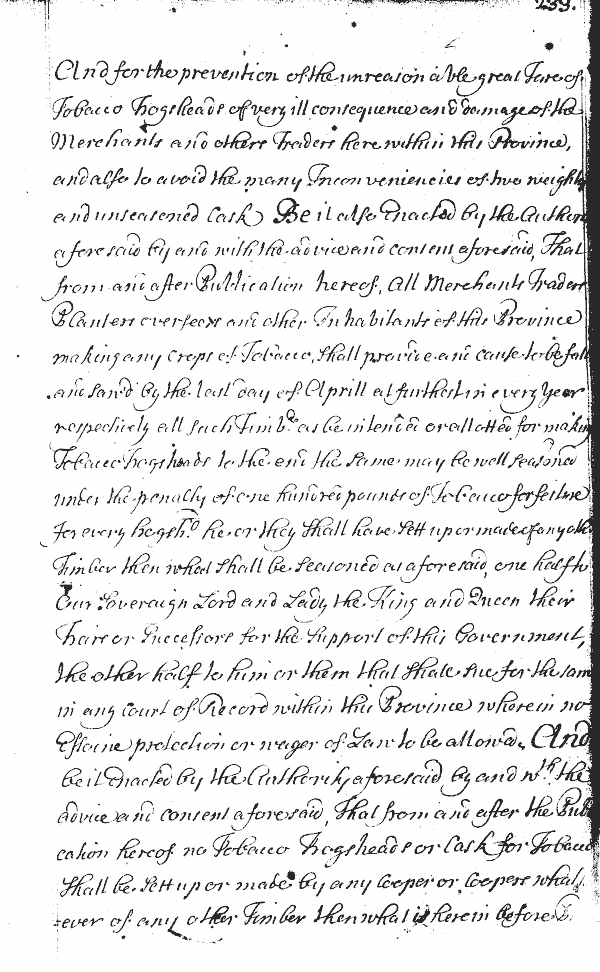 239.
And for the prevention of the unreasonable great Tare of
Tobacco hogsheads of very ill consequence and damage of the
Merchants and others Traders here within this Province,
and also to avoid the many Inconveniencies of two weighty
and unseasoned Cask Be it also Enacted by the Authori
aforesaid by and with the advice and consent aforesaid, That
from and after Publication hereof, all Merchants Traders
Planters overseers and other Inhabitants of this Province
making any crops of Tobacco, shall provide and cause to be fall
and saw'd by the last day of Aprill at furthest in every year
respectively all such Timbr as be intended or allotted for makin
Tobacco hogsheads to the end the same may be well seasoned
under the penalty of one hundred pounds of Tobacco forfeiture
for every hogshd he or they shall have sett up or made of any othe
Timber then what shall be seasoned as aforesaid, one half to
Our Sovereign Lord and Lady the King and Queen their
heirs or Successors for the Support of this Government,
the other half to him or them that shall sue for the sam
in any court of Record within this Province wherein no
Essoine protection or wager of Law to be allowed, And
be it Enacted by the Authority aforesaid by and wth the
advice and consent aforesaid, That from and after the Publ
cation hereof no Tobacco hogsheads or Cask for Tobacco
shall be sett up or made by any Cooper or Coopers what
=ever of any other Timber then what is herein before